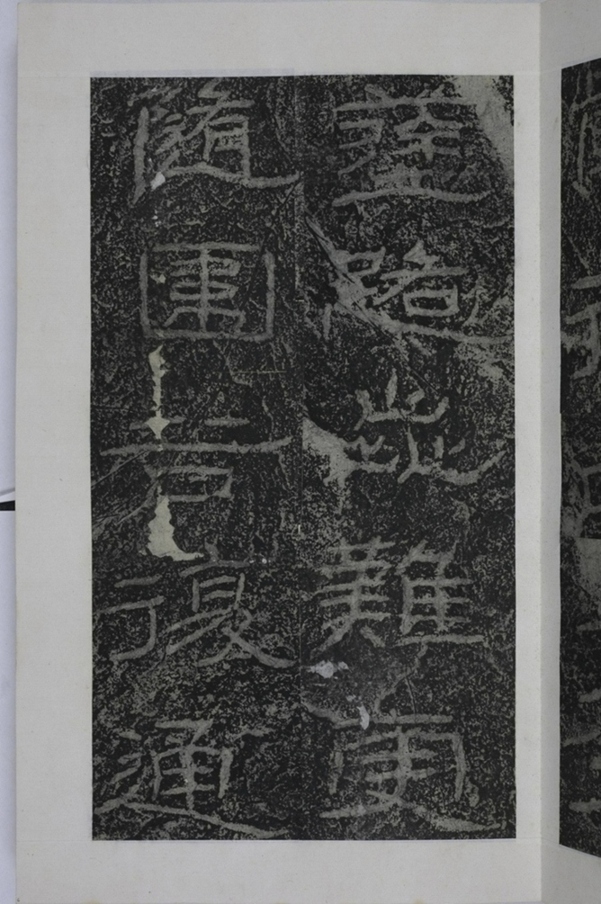 塗路歰難更
隨圍谷復通